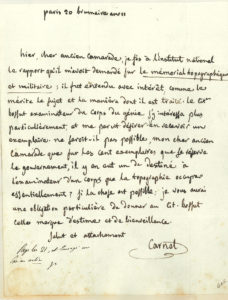 paris 20 brumaire an 11
hier, cher ancien Camarade, je fis à l'institut national
le rapport qu'il m'avoit demandé sur le mémorial topographique
et militaire ; il fut entendu avec intérêt, comme les
mérite le sujet et la manière dont il est traité. le Cit.
bossut examinateur du Corps du génie s'y intéressa plus
particulièrement, et me parut désirer en recevoir un
exemplaire. ne seroit-il pas possible mon cher ancien
Camarade que sur les cent exemplaires que je
le gouvernement, il y en eut un de destiné à
l'examinateur d'un corps que la topographie occupe
essentiellement ? si la chose est possible, je vous aurai
une obligation particulière de donner au Cit. bossut
cette marque d'estime et de bienveillance.
Salut et attachement
Carnot